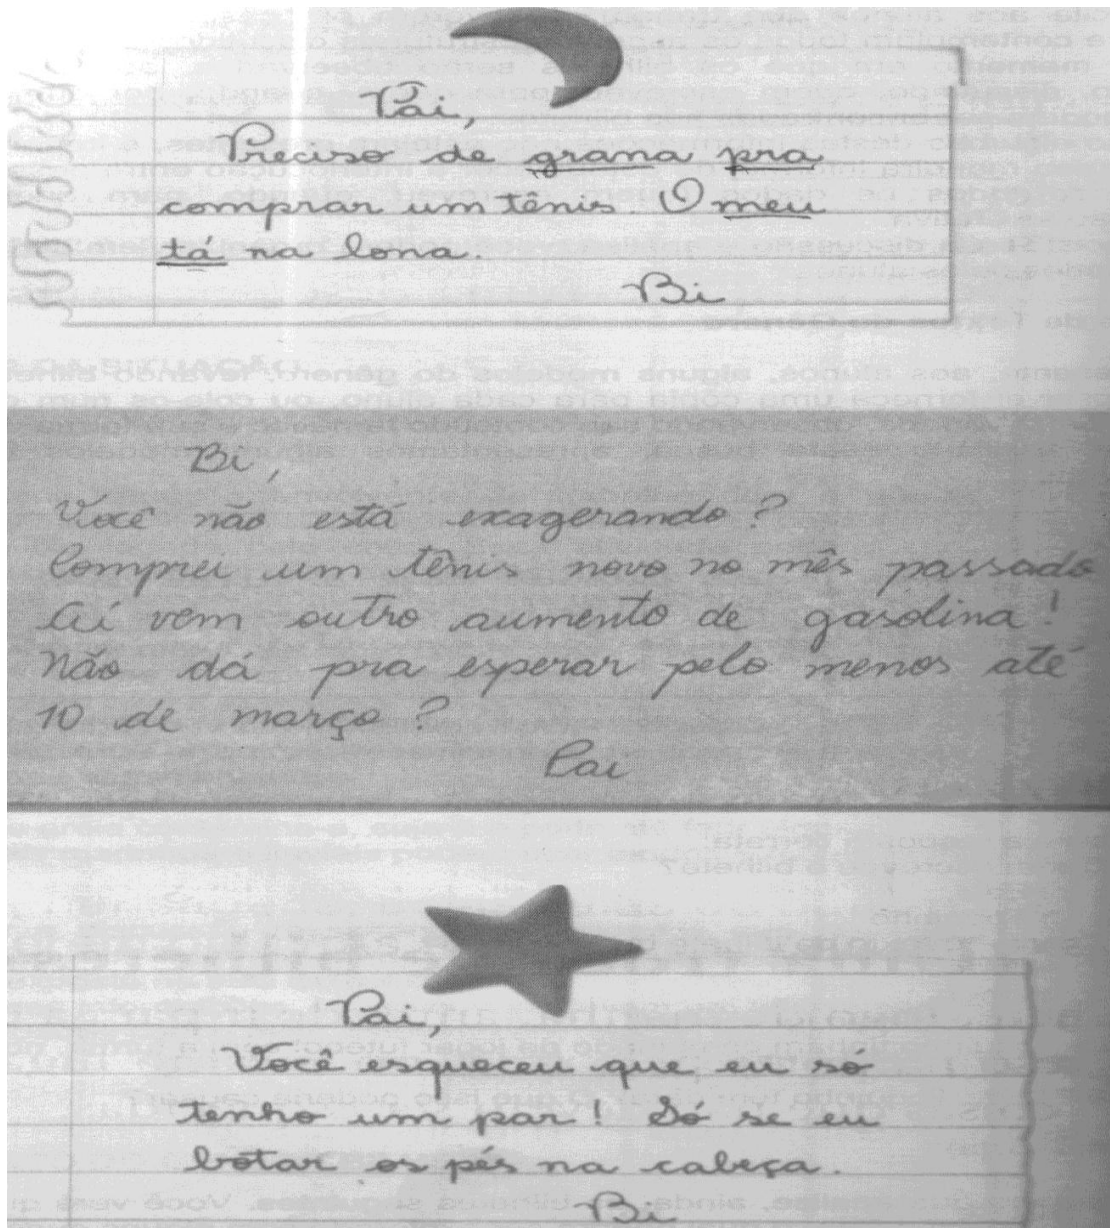 Pai,
Preciso de grana pra
comprar um tênis. O meu
tá na lona.
Bi
Bi,
Você não está exagerando?
Comprei um tênis novo no mês passado
Aí vem outro aumento de gasolina!
Não dá pra esperar pelo menos até
10 de março?
Pai
Pai,
Você esqueceu que eu só
tenho um par! Só se eu
botar os pés na cabeça.
Bi